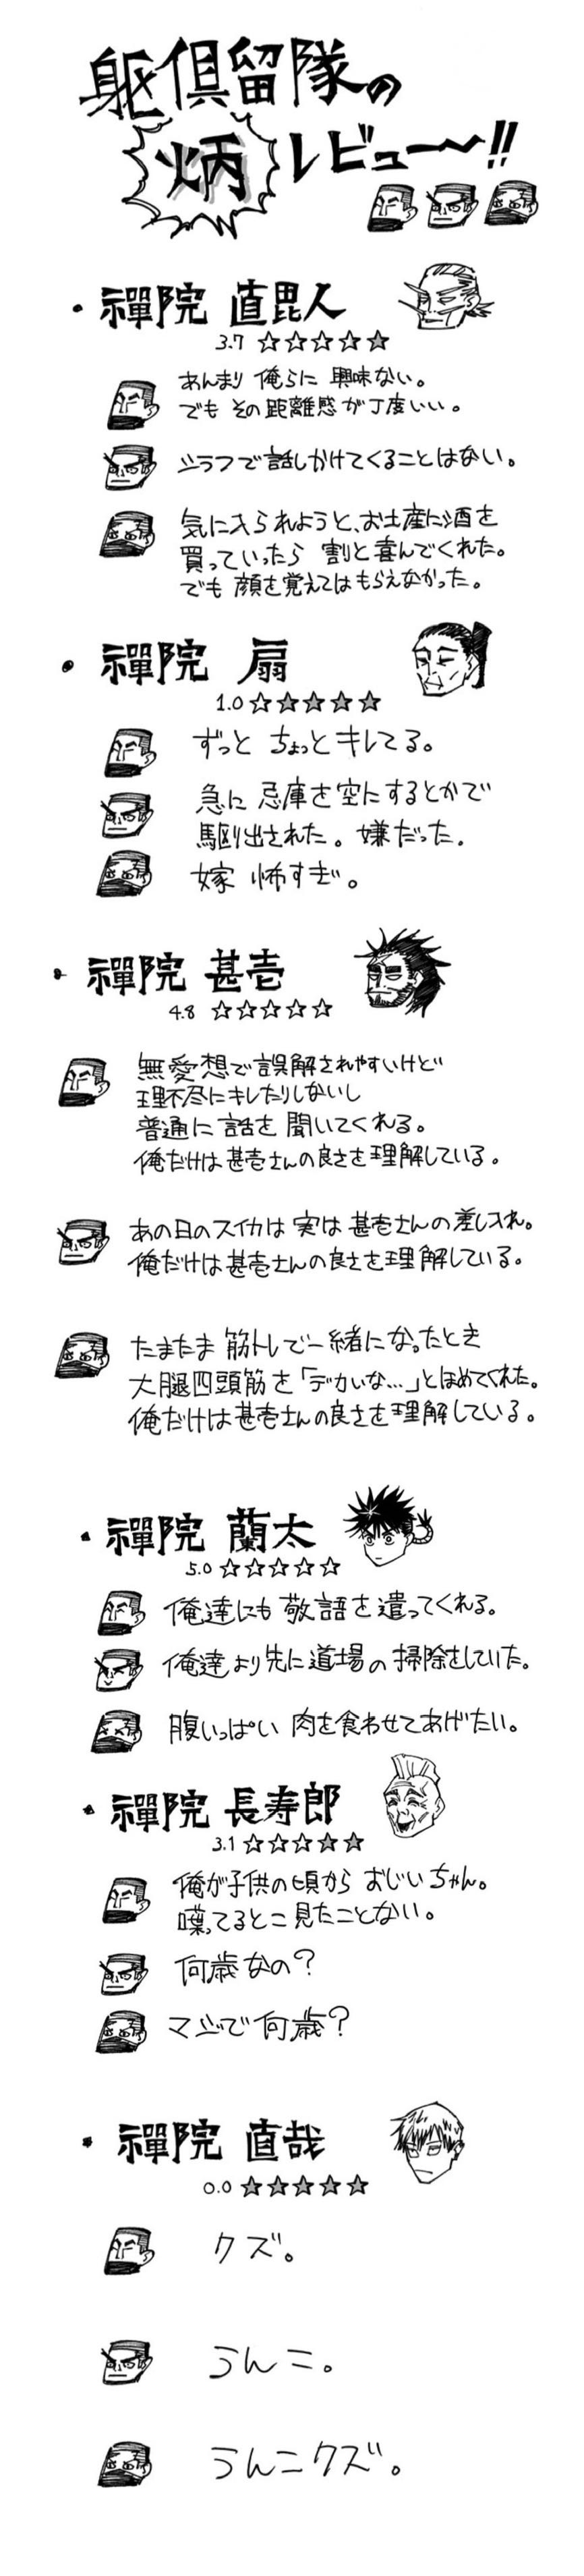 躯倶留隊の
炳 レビュー〜!!
・禪院 直毘人
3.7 ☆☆☆☆★
あんまり 俺らに 興味ない。
でも その距離感が丁度いい。
シラフで話しかけてくることはない。
気に入られようと、お土産に酒を
買っていったら 割と喜んでくれた。
でも 顔を覚えてはもらえなかった。
・禪院 扇
1.0 ☆★★★★
ずっと ちょっとキレてる。
急に 忌庫を空にするとかで
駆り出された。嫌だった。
嫁 怖すぎ。
・禪院 甚壱
4.8 ☆☆☆☆☆
無愛想で誤解されやすいけど
理不尽にキレたりしないし
普通に話を聞いてくれる。
俺だけは甚壱さんの良さを理解している。
あの日のスイカは実は甚壱さんの差し入れ。
俺だけは甚壱さんの良さを理解している。
たまたま 筋トレで一緒になったとき
大腿四頭筋を「デカいな…」とほめてくれた。
俺だけは甚壱さんの良さを理解している。
・禪院 蘭太
5.0 ☆☆☆☆☆
俺達にも 敬語を遣ってくれる。
俺達より先に道場の掃除をしていた。
腹いっぱい 肉を食わせてあげたい。
・禪院 長寿郎
3.1 ☆☆☆★★
俺が子供の頃から おじいちゃん。
喋ってるとこ見たことない。
何歳なの?
マジで何歳?
・禪院 直哉
0.0 ★★★★★
クズ。
うんこ。
うんこクズ。